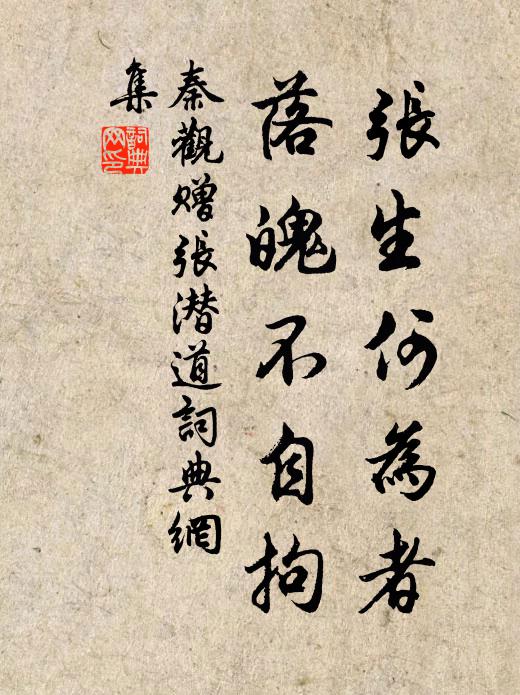 張生何為者
落魄不自拘
秦觀贈張潛道詞典網
集
詞典
网印